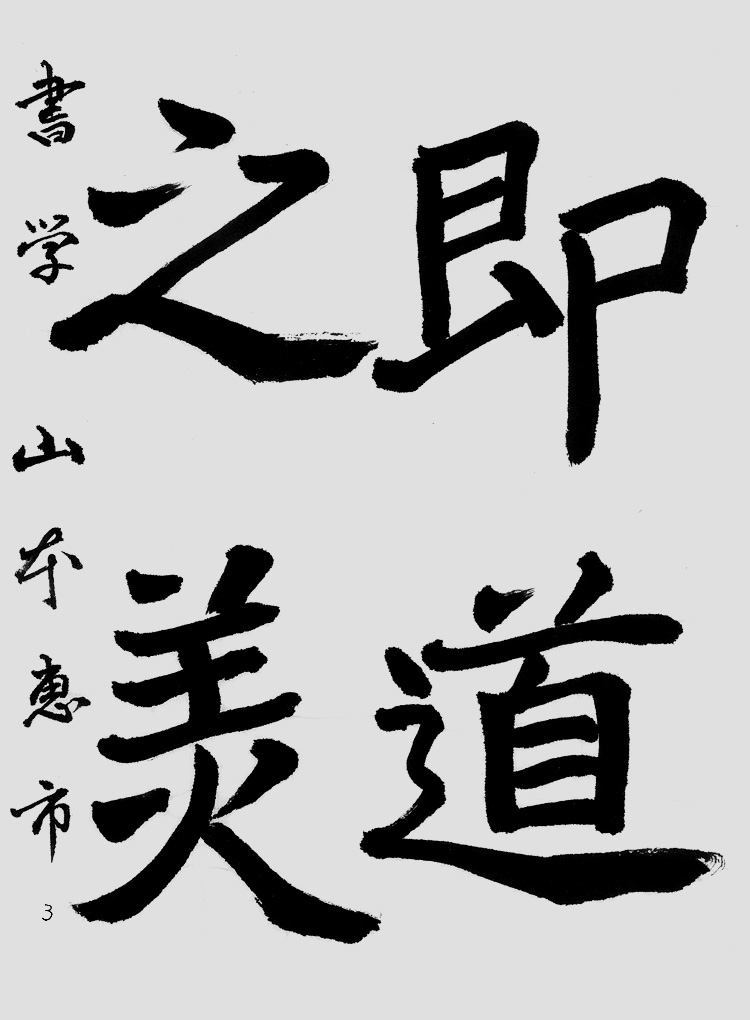 即道
之美
書学 山本恵市
3